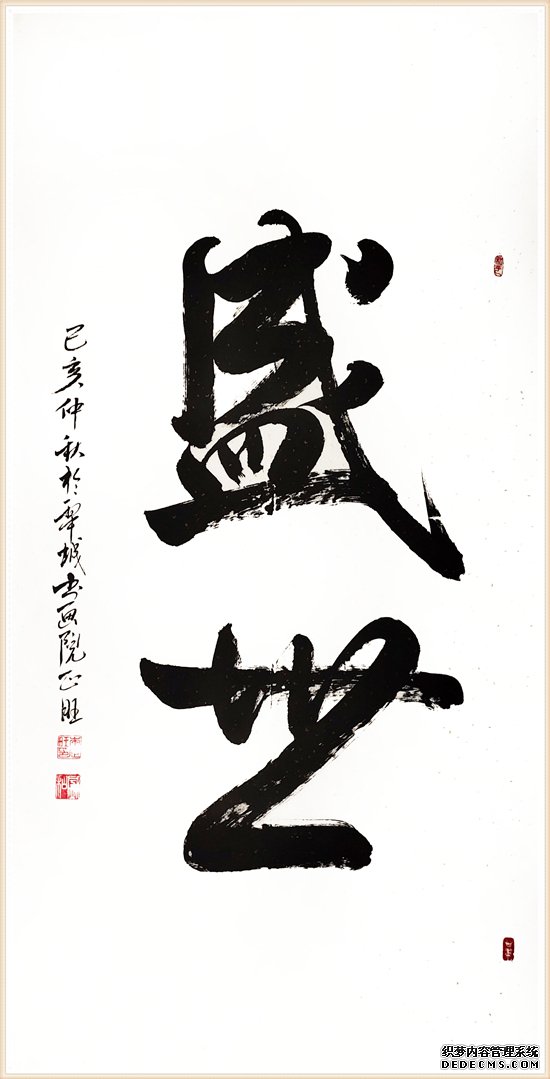 盛世
己亥仲秋於翠城书画院正旺
织梦内容管理系统
DEDECMS.COM